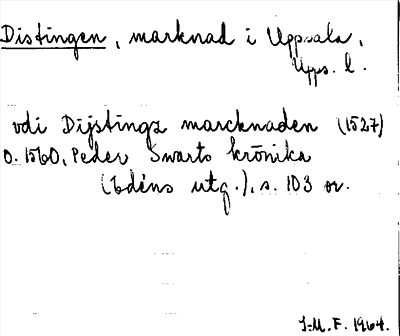 Distingen, marknad i Uppsala,
Upps. l.
vdi Dijstingz marcknaden (1527)
o. 1560, Peder Swarts krönika
(Edéns utg.), s. 103 or.
I.M.F. 1964.